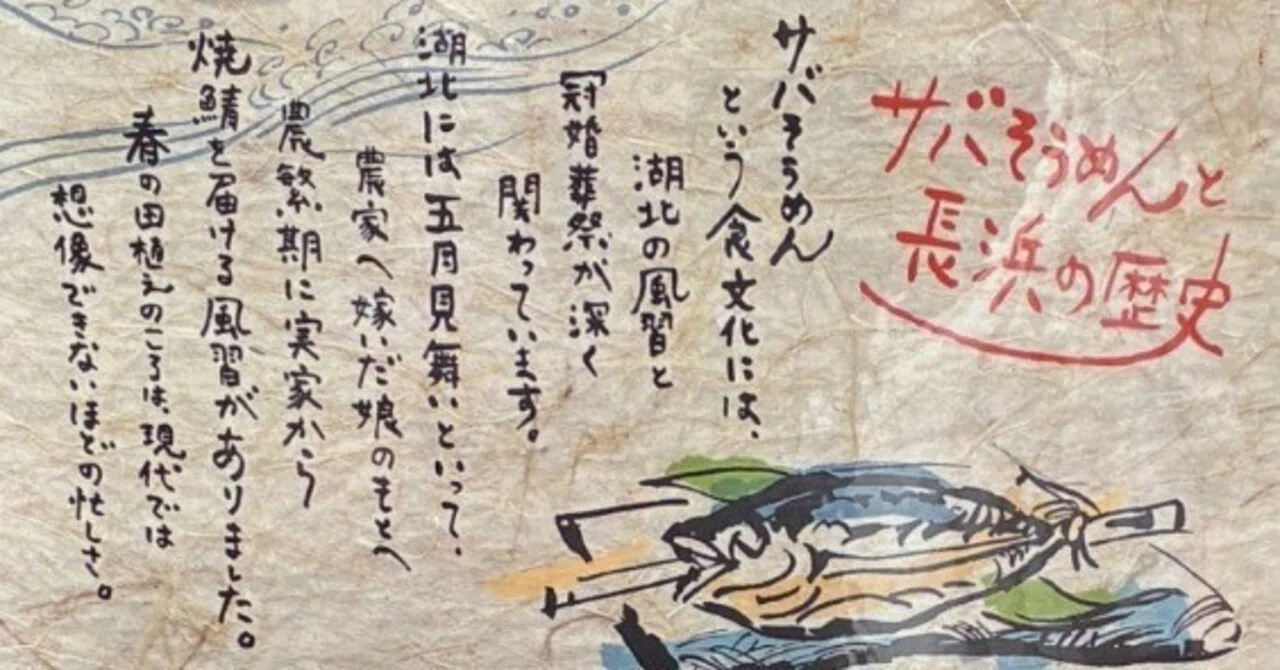 サバそうめんと
長浜の歴史
サバそうめん
という食文化には、
湖北の風習と
冠婚葬祭が深く
関わっています。
湖北には五月見舞いといって、
農家へ嫁いだ娘のもとへ
農繁期に実家から
焼鯖を届ける風習がありました。
春の田植えのころは、現代では
想像できないほどの忙しさ。